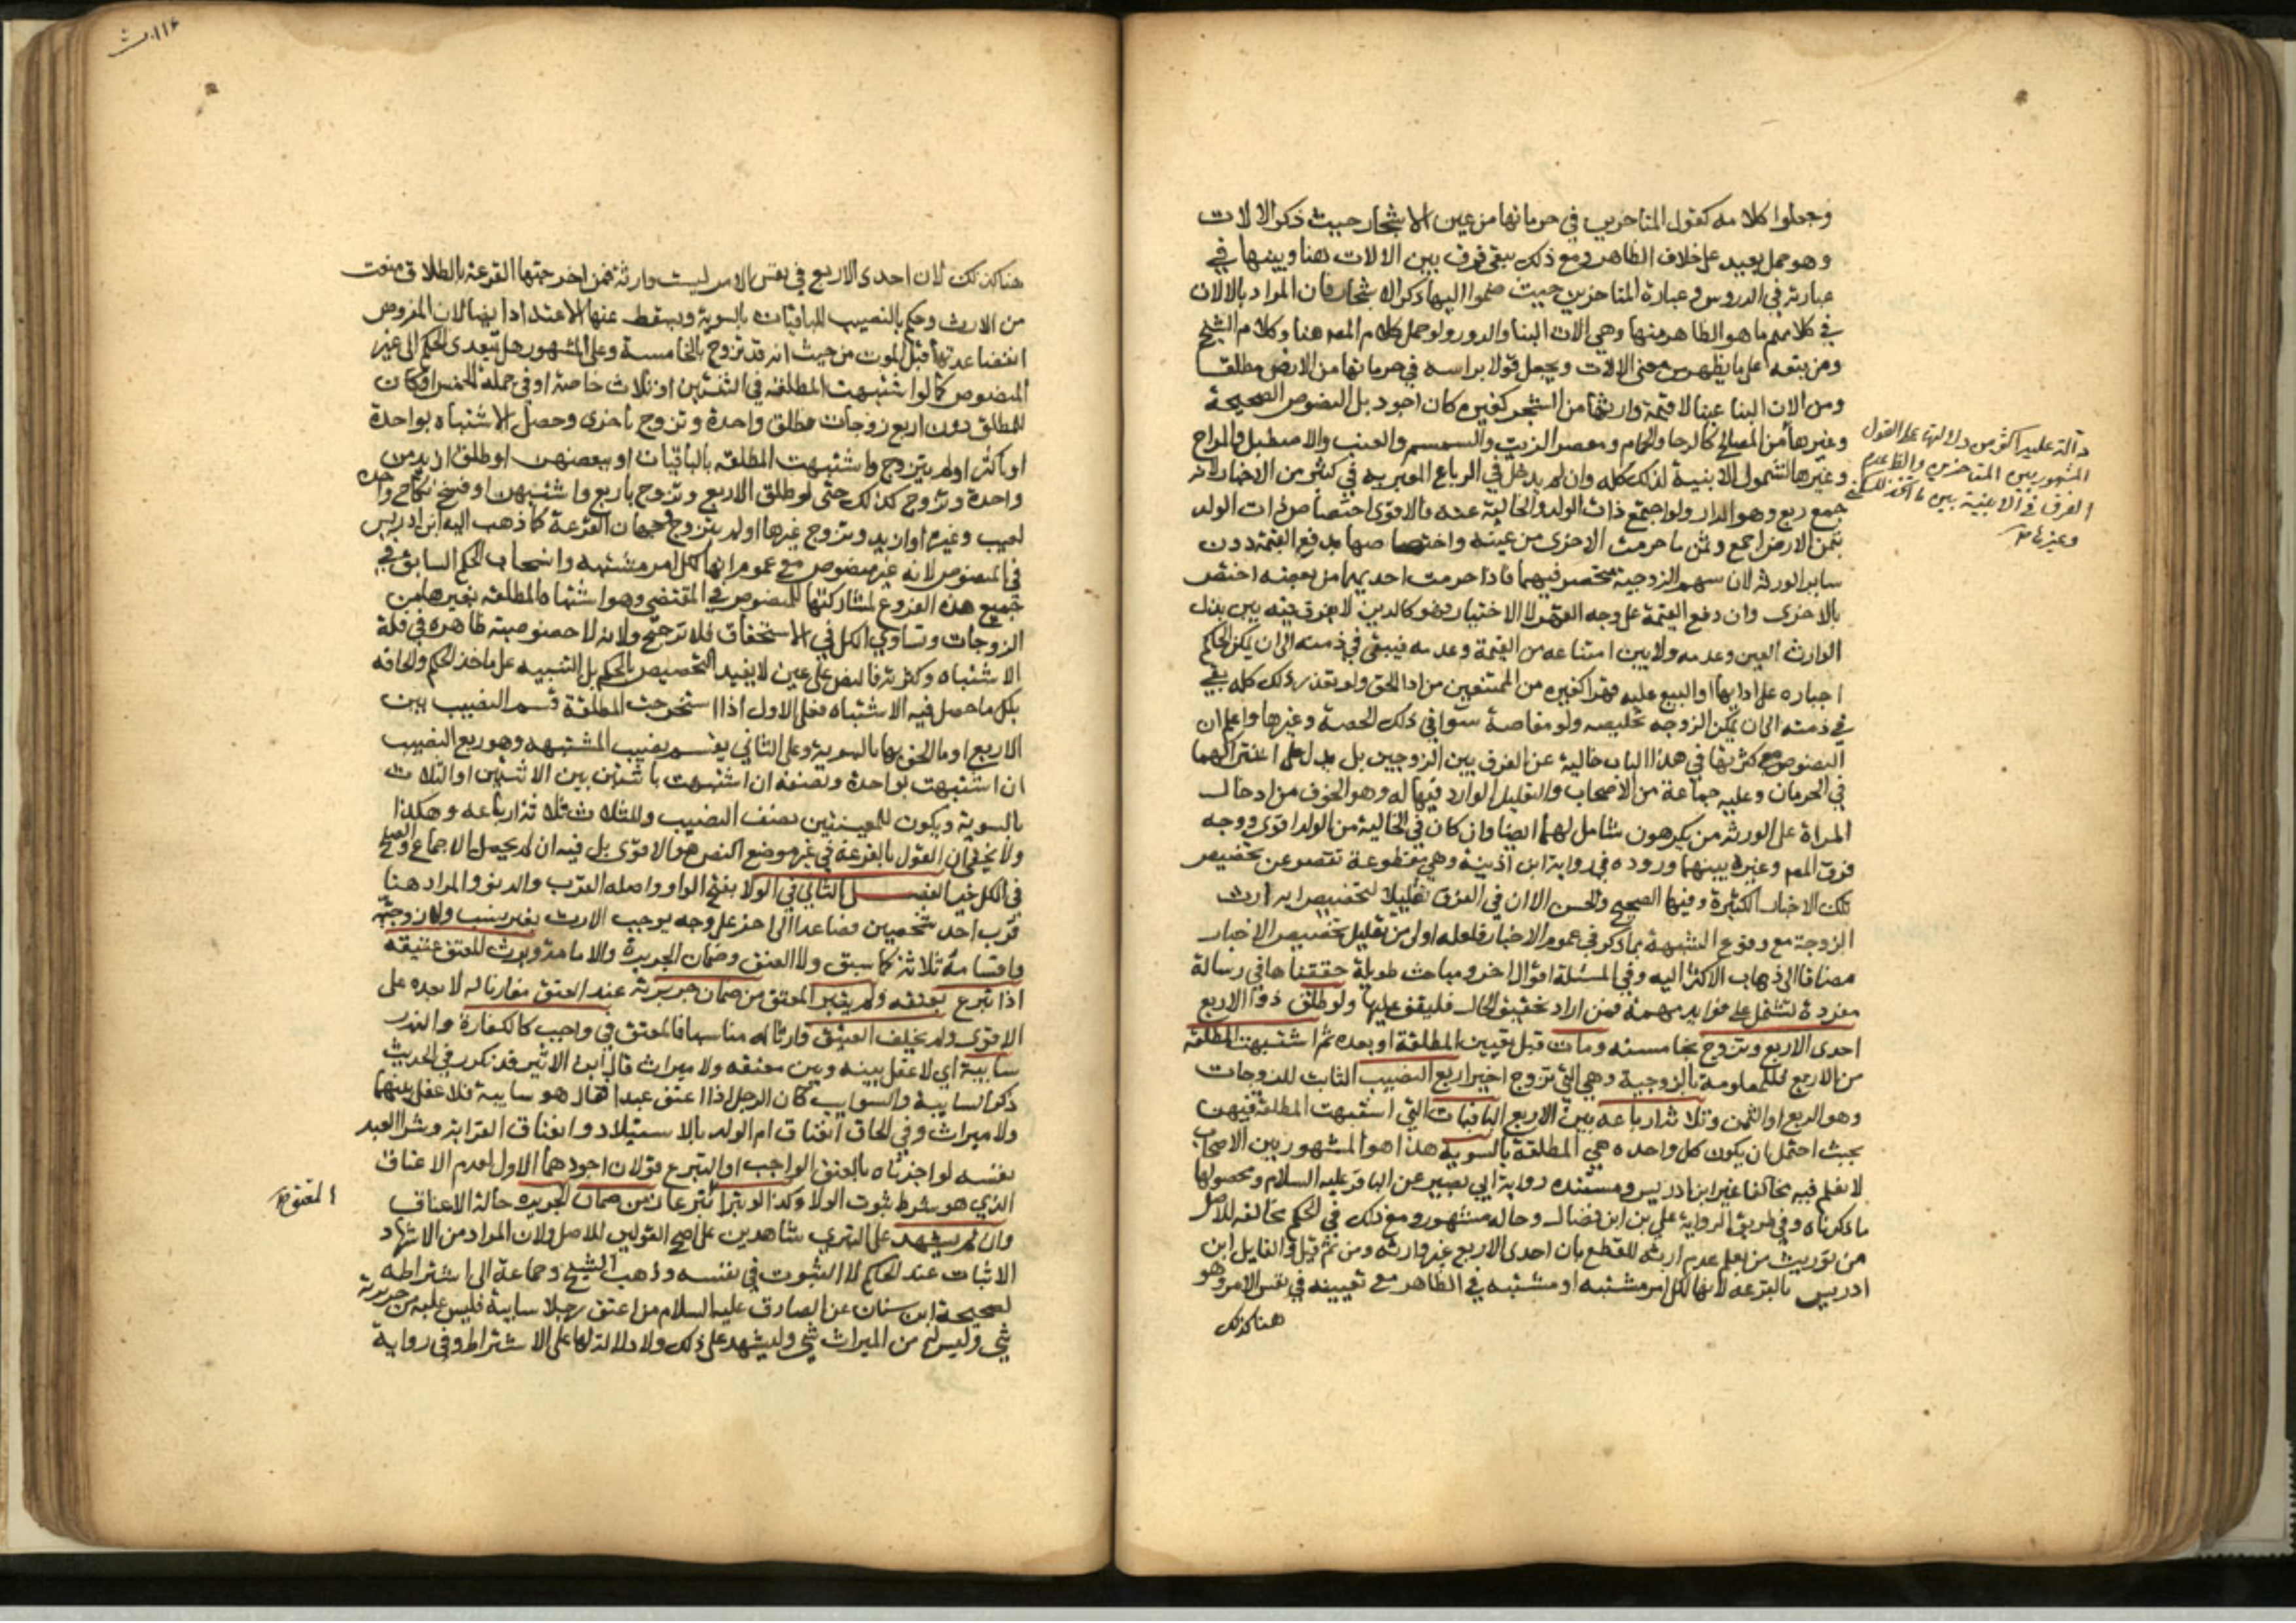 وجعلوا كلامه كقول المتاخرين في حرمانها من عين الاشجار حيث ذكر الالات
وهو حمل بعيد على خلاف الظاهر ومع ذلك يبقى فرق بين الالات هنا وبينها في
عبارته في الدروس وعبارة المتاخرين حيث ضموا اليها ذكر الاشجار فان المراد بالالات
في كلامهم ما هو الظاهر منها وهي الات البنا والدور ولو حمل كلام المص هنا وكلام الشيخ
ومن تبعه على ما يظهر من معنى الالات ويجعل قولا براسه في حرمانها من الارض مطلقا
ومن الات البنا عينا لا قيمة وارثها من الشجر كغيره كان اجود بل النصوص الصحيحة
وغيرها من المصالح كالرحا والحمام ومعصر الزيت والسمسم والعنب والاصطبل والمراح
وغيرها لشمول الابنية لذلك كله وان لم يدخل في الرباع المعبر به في كثير من الاخبار لانه
جمع ربع وهو الدار ولو اجتمع ذات الولد والخالية عنه فالاقوى اختصاص ذات الولد
بثمن الارض اجمع وثمن ما حرمت الاخرى من عينه واختصاصها بدفع القيمة دون
ساير الورثه لان سهم الزوجية منحصر فيهما فاذا حرمت احديهما من بعضه اختص
بالاخرى وان دفع القيمة على وجه القهر لا الاختيار فهو كالدين لا يفرق فيه بين بذل
الوارث العين وعدمه ولا بين امتناعه من القيمة وعدمه فيبقى في ذمته الى ان يمكن الحاكم
اجباره على ادايها او البيع عليه قهرا كغيره من الممتنعين من ادا الحق ولو تعذر ذلك كله بقي
في ذمته الى ان يمكن الزوجه تخليصه ولو مقاصة سوا في ذلك الحصة وغيرها واعلم ان
النصوص مع كثرتها في هذا الباب خالية عن الفرق بين الزوجين بل يدل على اشتراكهما
في الحرمان وعليه جماعة من الاصحاب والتعليل الوارد فيها له وهو الخوف من ادخال
المراة على الورثه من يكرهون شامل لهما ايضا وان كان في الخالية من الولد اقوى ووجه
فرق المص وغيره بينهما وروده في رواية ابن اذينة وهي مقطوعة تقصر عن تخصيص
تلك الاخبار الكثيرة وفيها الصحيح والحسن الا ان في الفرق تقليلا لتخصيص اية ارث
الزوجة مع وقوع الشبهة بما ذكر في عموم الاخبار فلعله اولى من تقليل تخصيص الاخبار
مضافا الى ذهاب الاكثر اليه وفي المسئلة اقوال اخر ومباحث طويلة حققناها في رسالة
مفردة تشتمل على فوايد مهمة فمن اراد تحقيق الحال فليقف عليها ولو طلق ذو الاربع
احدى الاربع وتزوج بخامسه ومات قبل تعيين المطلقة او بعده ثم اشتبهت المطلقه
من الاربع فللمعلومة بالزوجية وهي التي تزوج اخيرا ربع النصيب الثابت للزوجات
وهو الربع او الثمن وثلاثة ارباعه بين الاربع الباقيات التي اشتبهت المطلقة فيهن
بحيث احتمل ان يكون كل واحده هي المطلقة بالسوية هذا هو المشهور بين الاصحاب
لا نعلم فيه مخالفا غير ابن ادريس ومستنده رواية ابي بصير عن الباقر عليه السلام ومحصولها
ما ذكرناه وفي طريق الرواية علي بن ابن فضال وحاله مشهور ومع ذلك في الحكم مخالفه للاصل
من توريث من يعلم عدم ارثه للقطع بان احدى الاربع غير وارثه ومن ثم قيل والقايل ابن
ادريس بالقرعه لانها لكل امر مشتبه او مشتبه في الظاهر مع تعيينه في نفس الامر وهو
هنا كذلك
دالة عليه اكثر من دلالتها على القول
المشهور بين المتاخرين والظ عدم
الفرق في الابنية بين ما اتخذ للسكنى
وغيرها صح
هنا كذلك لان احدى الاربع في نفس الامر ليست وارثة فمن اخرجتها القرعة بالطلاق منعت
من الارث وحكم بالنصيب للباقيات بالسوية ويسقط عنها الاعتداد ايضا لان المفروض
انقضا عدتها قبل الموت من حيث انه قد تزوج بالخامسة وعلى المشهور هل يتعدى الحكم الى غير
المنصوص كما لو اشتبهت المطلقة في اثنتين او ثلاث خاصة او في جملة الخمس او كان
للمطلق دون اربع زوجات فطلق واحدة وتزوج باخرى وحصل الاشتباه بواحدة
او باكثر او لم يتزوج واشتبهت المطلقه بالباقيات او ببعضهن او طلق ازيد من
واحدة وتزوج كذلك حتى لو طلق الاربع وتزوج باربع واشتبهن او فسخ نكاح واحده
لعيب وغيره او ازيد وتزوج غيرها او لم يتزوج وجهان القرعة كما ذهب اليه ابن ادريس
في المنصوص لانه غير منصوص مع عموم انها لكل امر مشتبه وانسحاب الحكم السابق في
جميع هذه الفروع لمشاركتها للمنصوص في المقتضي وهو اشتباه المطلقه بغيرها من
الزوجات وتساوي الكل في الاستحقاق فلا ترجيح ولانه لا خصوصية ظاهره في قلة
الاشتباه وكثرته فالنص على عين لا يفيد التخصيص بالحكم بل التنبيه على ماخذ الحكم والحاقه
بكل ما حصل فيه الاشتباه فعلى الاول اذا استخرجت المطلقة قسم النصيب بين
الاربع او ما الحق بها بالسوية وعلى الثاني يقسم نصيب المشتبهه وهو ربع النصيب
ان اشتبهت بواحدة ونصفه ان اشتبهت باثنتين بين الاثنتين او الثلاث
بالسوية ويكون للمعينتين نصف النصيب وللثلاث ثلاثة ارباعه وهكذا
ولا يخفى ان القول بالقرعة في غير موضع النص هو الاقوى بل فيه ان لم يحصل الاجماع والصلح
في الكل خير الفصل الثاني في الولا بفتح الواو واصله القرب والدنو والمراد هنا
قرب احد شخصين فصاعدا الى اخر على وجه يوجب الارث بغير نسب ولا زوجية
واقسامه ثلاثة كما سبق ولا العتق وضمان الجريرة والامامة ويرث المعتق عتيقه
اذا تبرع بعتقه ولم يتبر المعتق من ضمان جريرته عند العتق مقارنا له لا بعده على
الاقوى ولم يخلف العتيق وارثا له مناسبا فالمعتق في واجب كالكفارة والنذر
سايبة اي لا عقل بينه وبين معتقه ولا ميراث قال ابن الاثير قد تكرر في الحديث
ذكر السايبة والسوايب كان الرجل اذا اعتق عبدا فقال هو سايبة فلا عقل بينهما
ولا ميراث وفي الحاق انعتاق ام الولد بالاستيلاد وانعتاق القرابة وشرا العبد
نفسه لو اجزناه بالعتق الواجب او التبرع قولان اجودهما الاول لعدم الاعتاق
الذي هو شرط ثبوت الولا وكذا لو تبرا تبرعا من ضمان الجريره حالة الاعتاق
وان لم يشهد على التبري شاهدين على اصح القولين للاصل ولان المراد من الاشهاد
الاثبات عند الحاكم لا الثبوت في نفسه وذهب الشيخ وجماعة الى اشتراطه
لصحيحة ابن سنان عن الصادق عليه السلام من اعتق رجلا سايبة فليس عليه من جريرته
شي وليس له من الميراث شي وليشهد على ذلك ولا دلالة لها على الاشتراط وفي رواية
المعتق صح